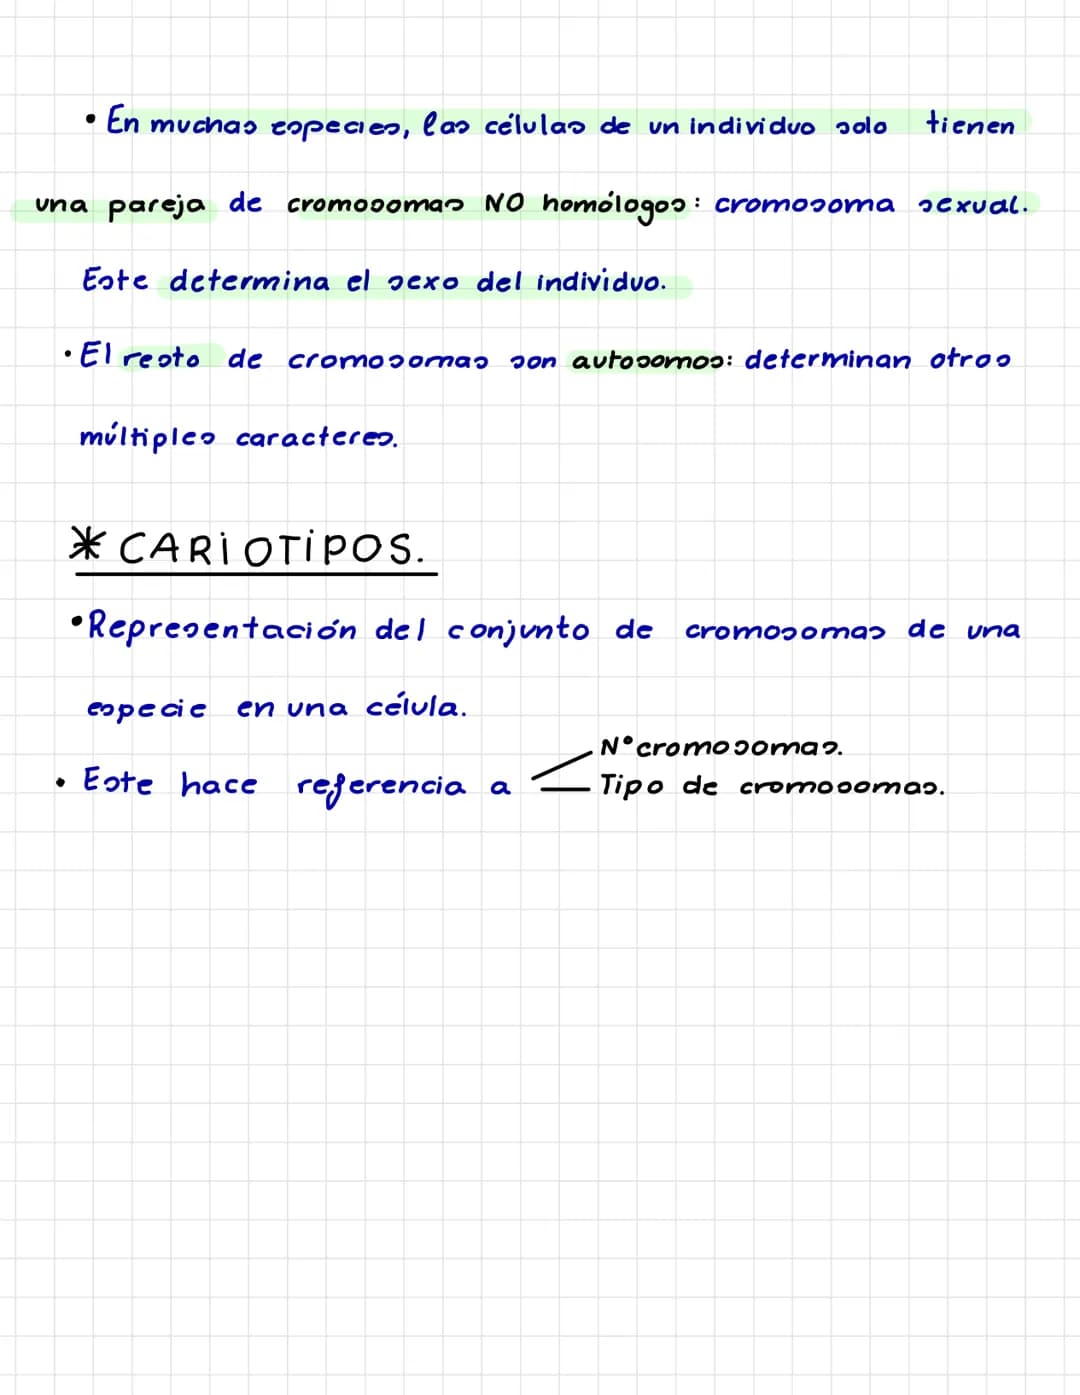 • En muchas especies, las células de un individuo solo tienen
una pareja de cromosomas NO homólogos: cromosoma sexual.
Este determina el sexo del individuo.
• El resto de cromosomas son autosomos: determinan otros
múltiples caracteres.
* CARIOTIPOS.
• Representación del conjunto de cromosomas de una
especie en una célula.
N° cromosomas.
• Este hace referencia a
Tipo de cromosomas.